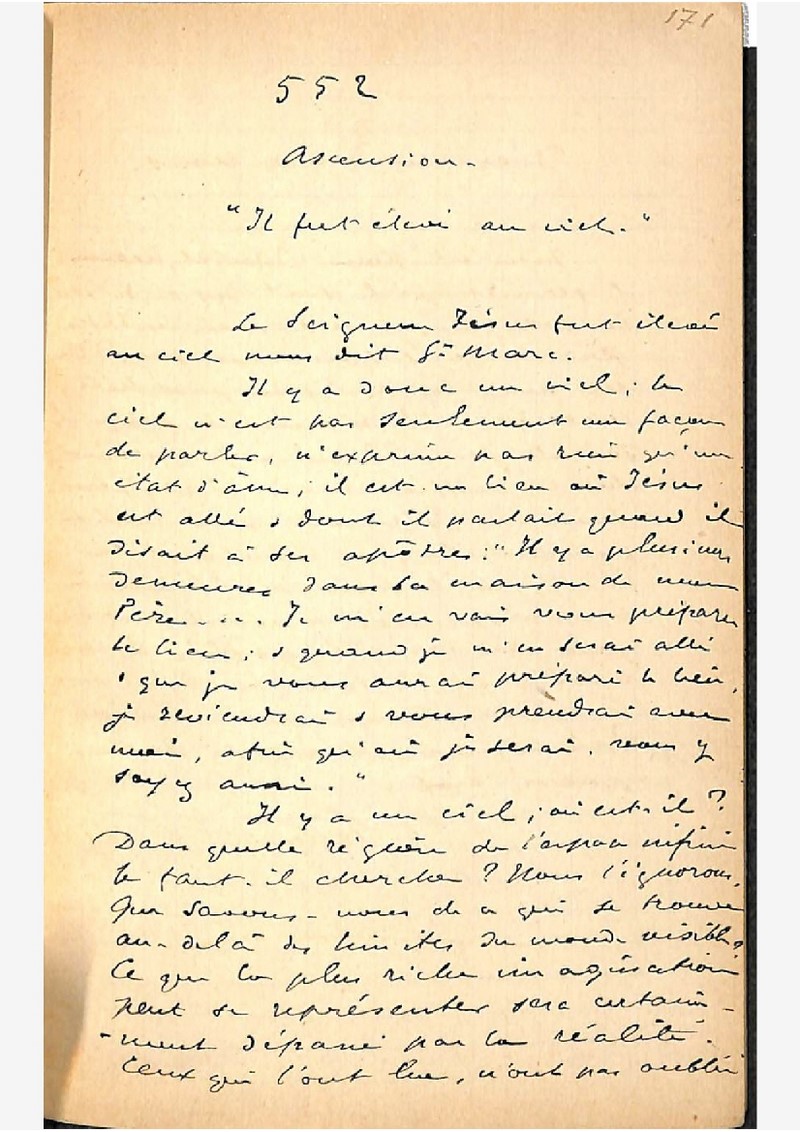 171
552
Ascension.
"Il fut élevé au ciel."
Le Seigneur Jésus fut élevé
au ciel nous dit St Marc.
Il y a donc un ciel; le
ciel n'est pas seulement une façon
de parler, n'exprime pas rien qu'un
état d'âme; il est un lieu où Jésus
est allé & dont il parlait quand il
disait à ses apôtres: "Il y a plusieurs
demeures dans la maison de mon
Père.... Je m'en vais vous préparer
le lieu; & quand je m'en serai allé
& que je vous aurai préparé le lieu,
je reviendrai & vous prendrai avec
moi, afin qu'où je serai, vous y
soyez aussi."
Il y a un ciel; où est-il?
Dans quelle région de l'espace infini
le faut-il chercher? Nous l'ignorons.
Que savons-nous de ce qui se trouve
au-delà des limites du monde visible?
Ce que la plus riche imagination
peut se représenter sera certain-
-ment dépassé par la réalité.
Ceux qui l'ont lue, n'ont pas oublié